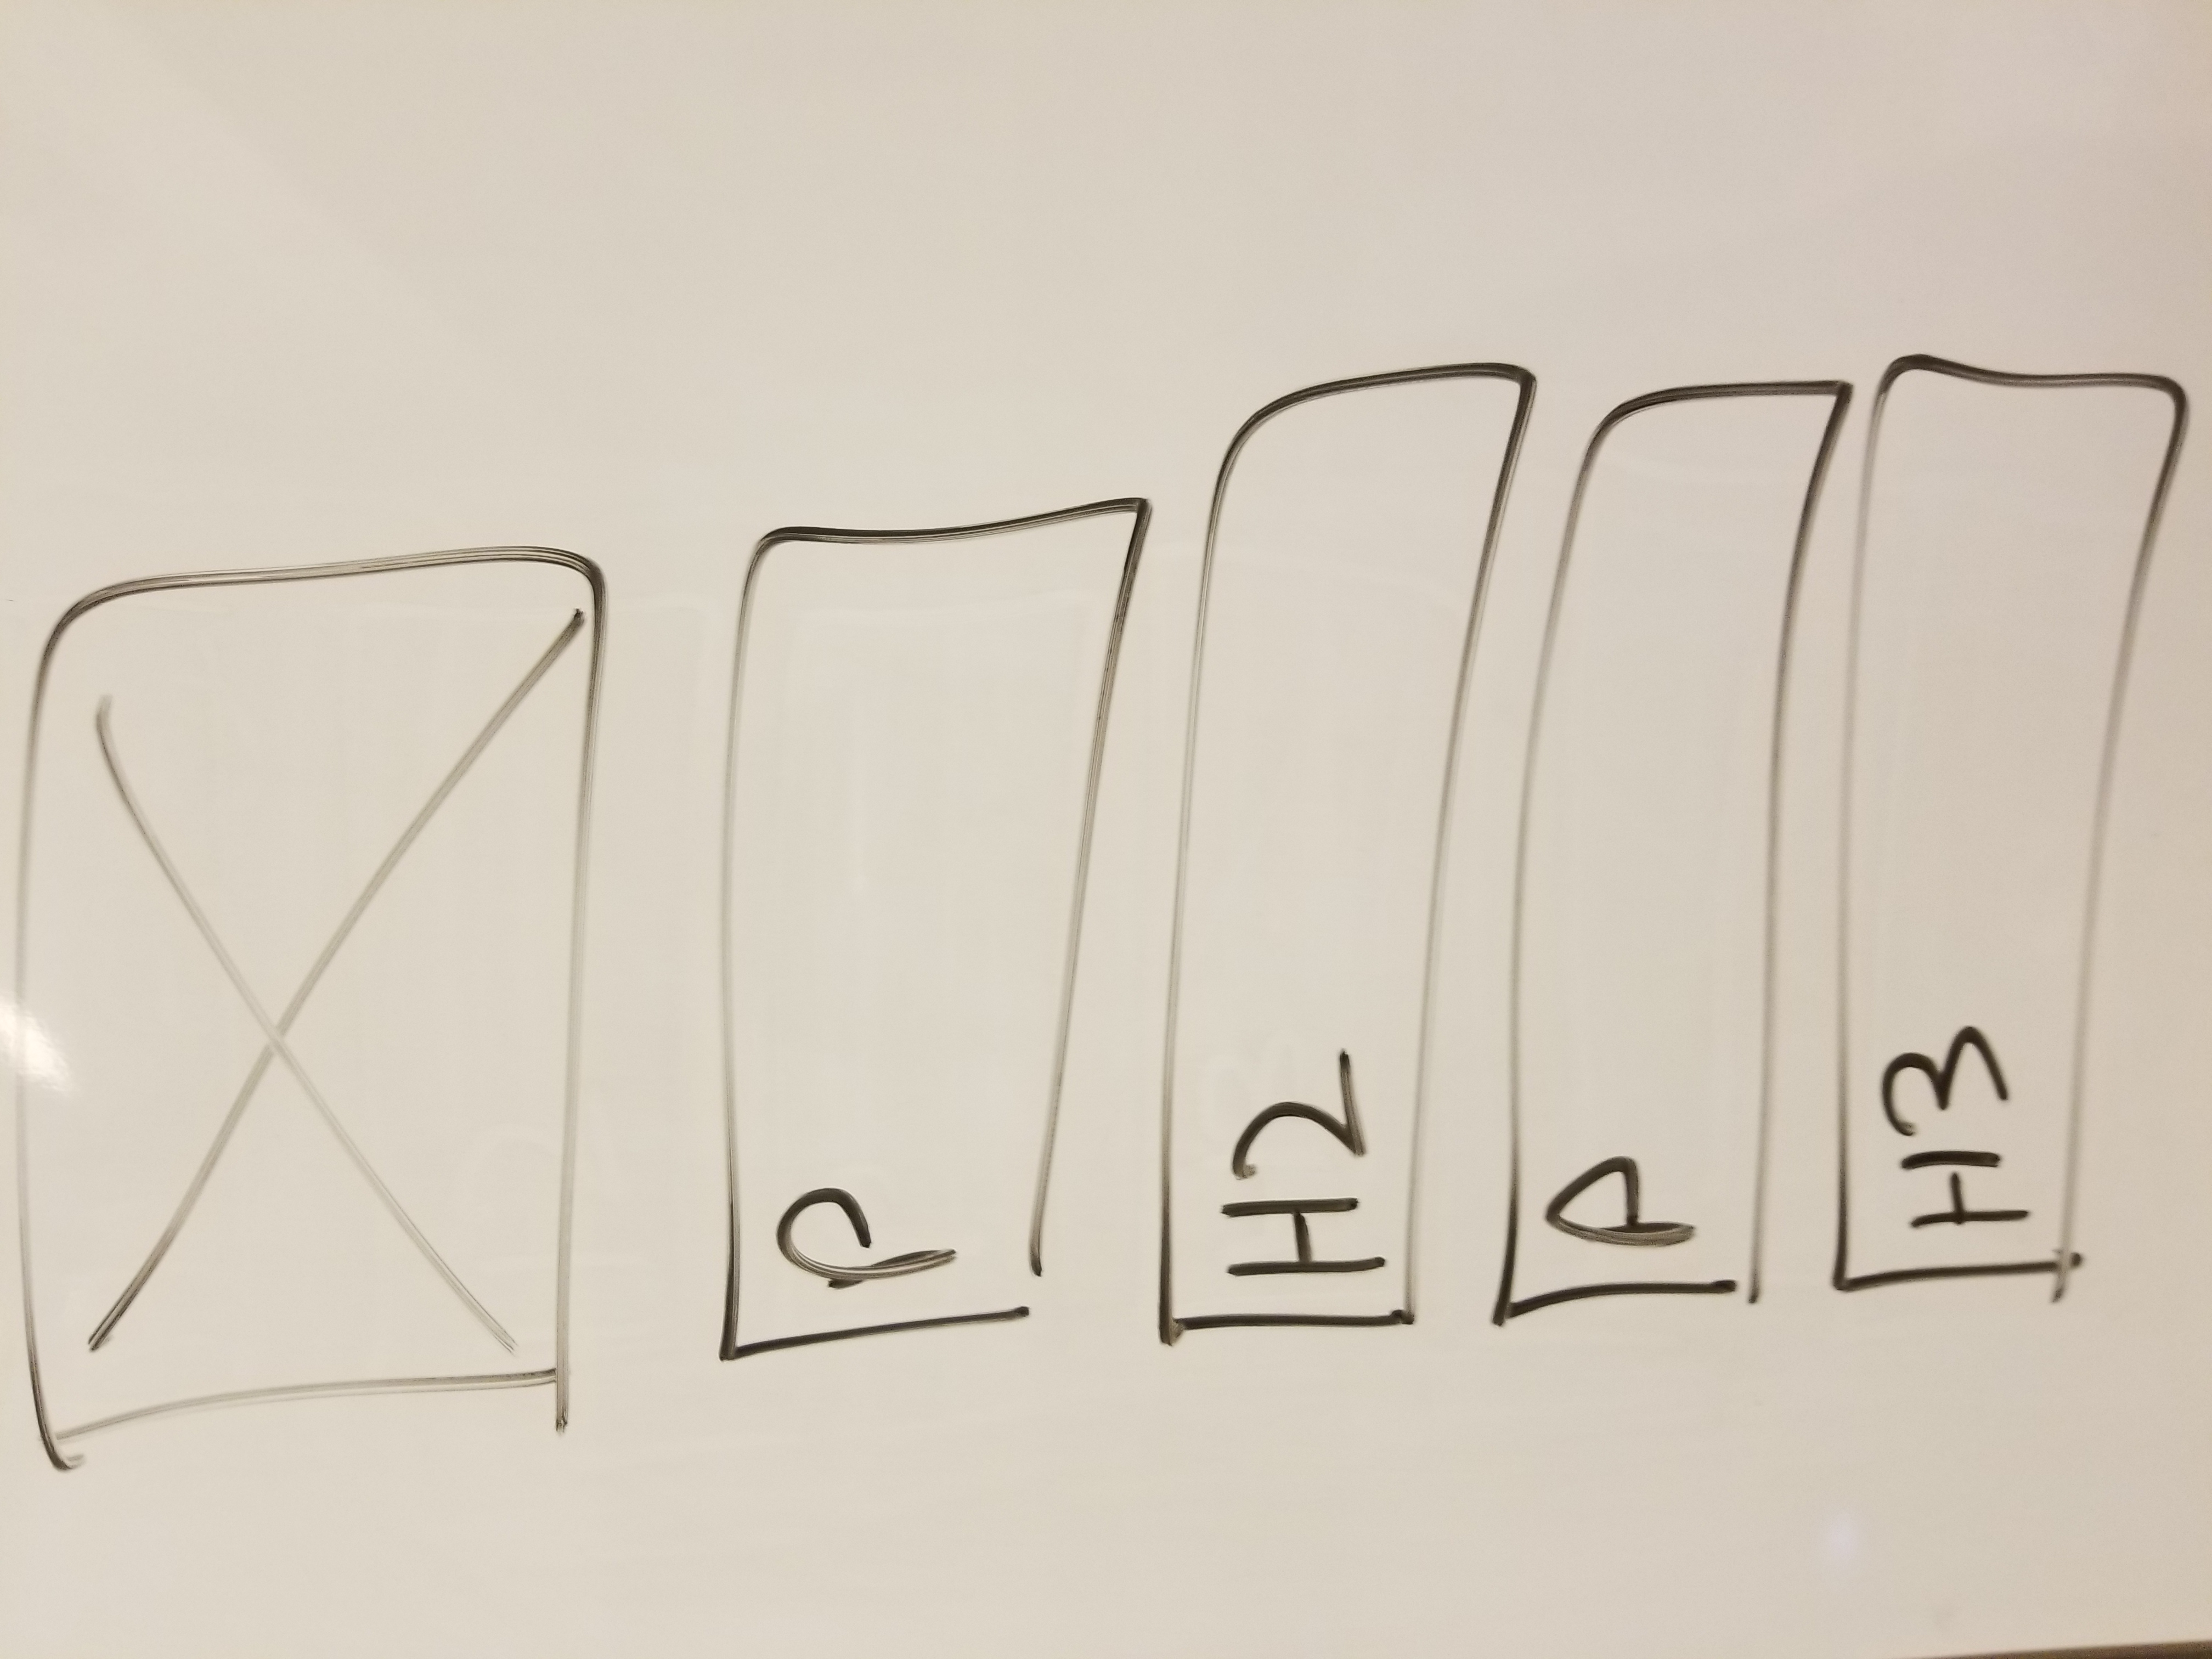 P
H2
P
H3